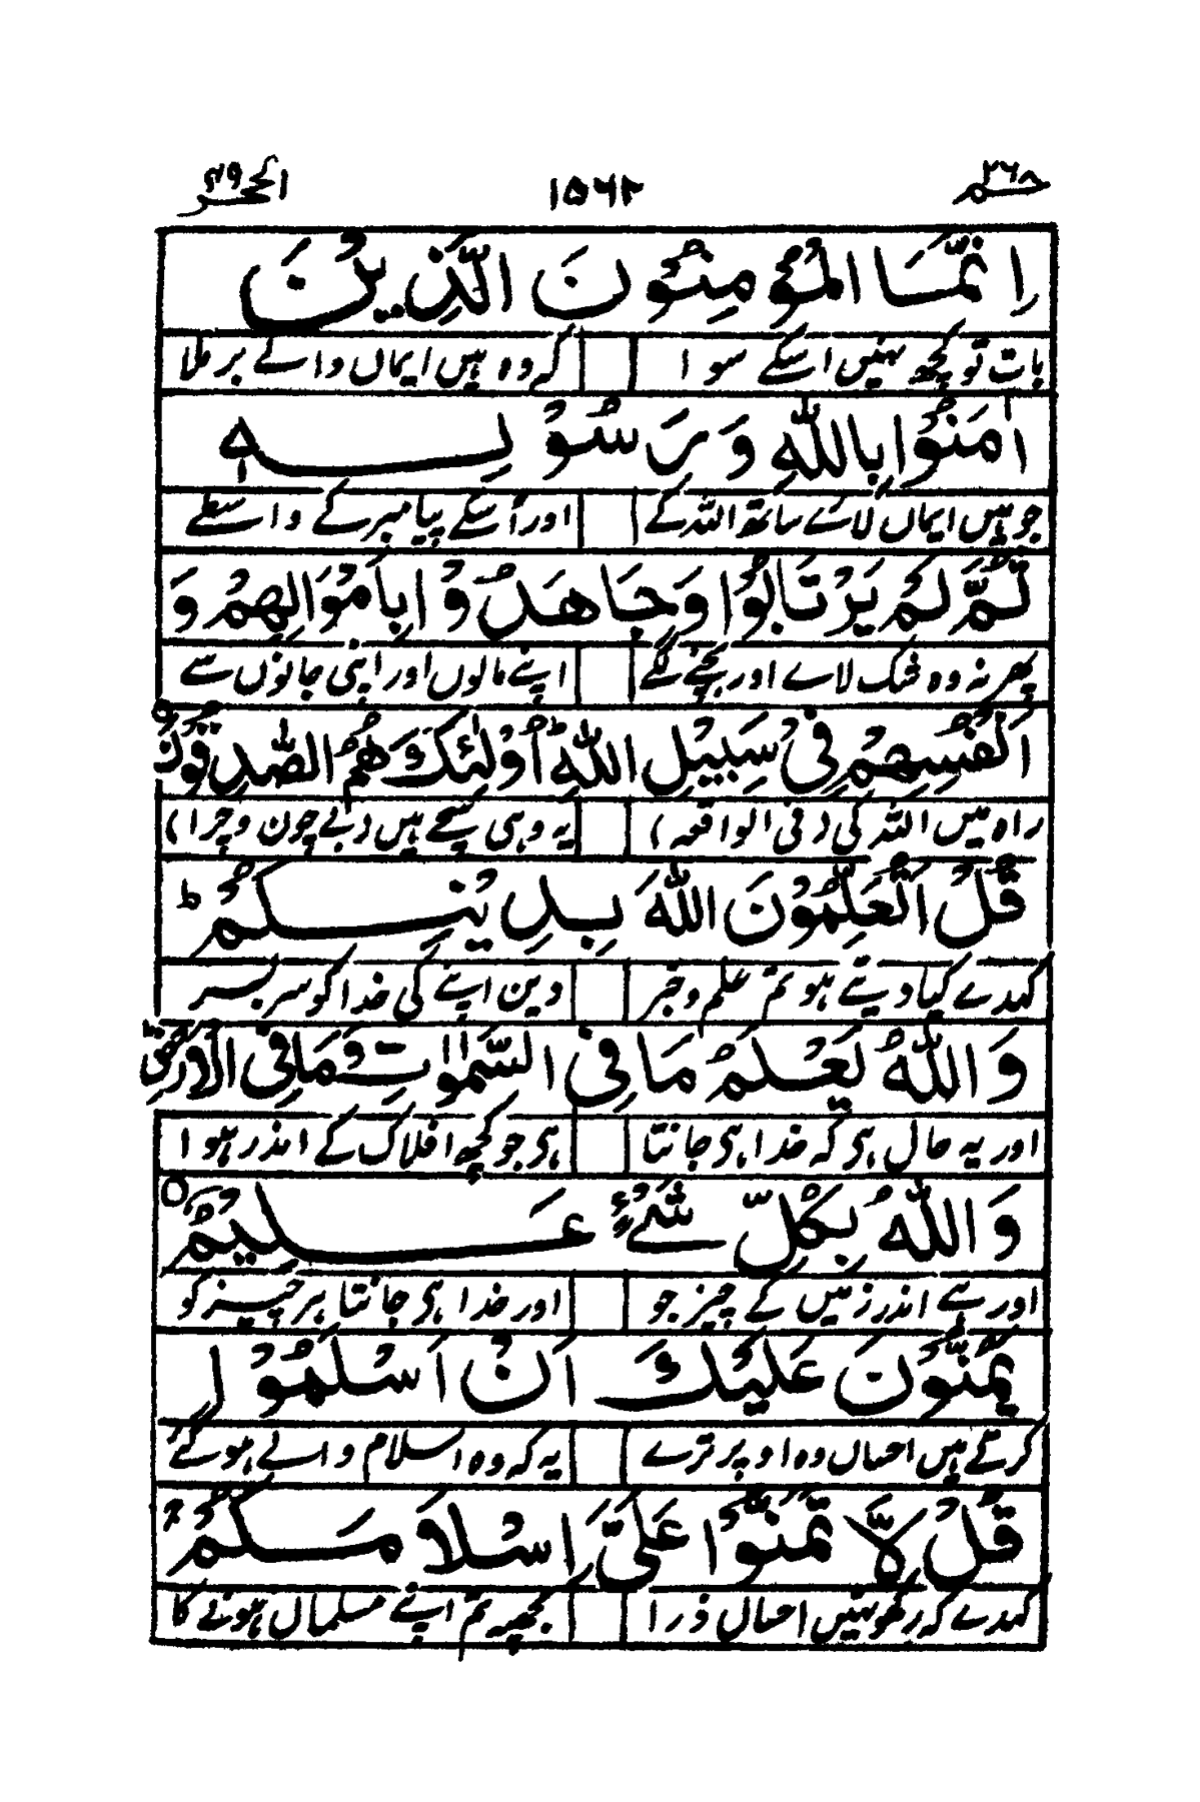 حٰمٓ ٢٦ ١٥٦٢ الحجر ٤٩
اِنَّمَا الْمُؤْمِنُوْنَ الَّذِيْنَ
بات تو کچھ نہیں اسکے سوا کہ وہ ہیں ایماں والے بر ملا
اٰمَنُوْا بِاللّٰهِ وَرَسُوْلِهٖ
جو ہیں ایماں لائے ساتھ اللہ کے اور اُسکے پیامبر کے واسطے
ثُمَّ لَمْ يَرْتَابُوْا وَجَاهَدُوْا بِاَمْوَالِهِمْ وَ
پھر نہ وہ شک لائے اور بچنے لگے اپنے مالوں اور اپنی جانوں سے
اَنْفُسِهِمْ فِيْ سَبِيْلِ اللّٰهِ ؕ اُولٰٓئِكَ هُمُ الصّٰدِقُوْنَ ○
راہ میں اللہ کی (فی الواقعہ) یہ وہی سچے ہیں (بے چون وچرا)
قُلْ اَتُعَلِّمُوْنَ اللّٰهَ بِدِيْنِكُمْ ؕ
کہدے کیا دیتے ہو تم علم وخبر دین اپنے کی خدا کو سر بسر
وَاللّٰهُ يَعْلَمُ مَا فِي السَّمٰوٰتِ وَمَا فِي الْاَرْضِ ؕ
اور یہ حال ہی کہ خدا ہی جانتا ہی جو کچھ افلاک کے اندر ہوا
وَاللّٰهُ بِكُلِّ شَيْءٍ عَلِيْمٌ ○
اور ہے اندر زمیں کے چیز جو اور خدا ہی جانتا ہر چیز کو
يَمُنُّوْنَ عَلَيْكَ اَنْ اَسْلَمُوْا
کرتے ہیں احساں وہ اوپر ترے یہ کہ وہ اسلام والے ہو گئے
قُلْ لَّا تَمُنُّوْا عَلَيَّ اِسْلَامَكُمْ ۚ
کہدے کہ رکھو نہیں احساں ذرا مجھپہ تم اپنے مسلماں ہونے کا